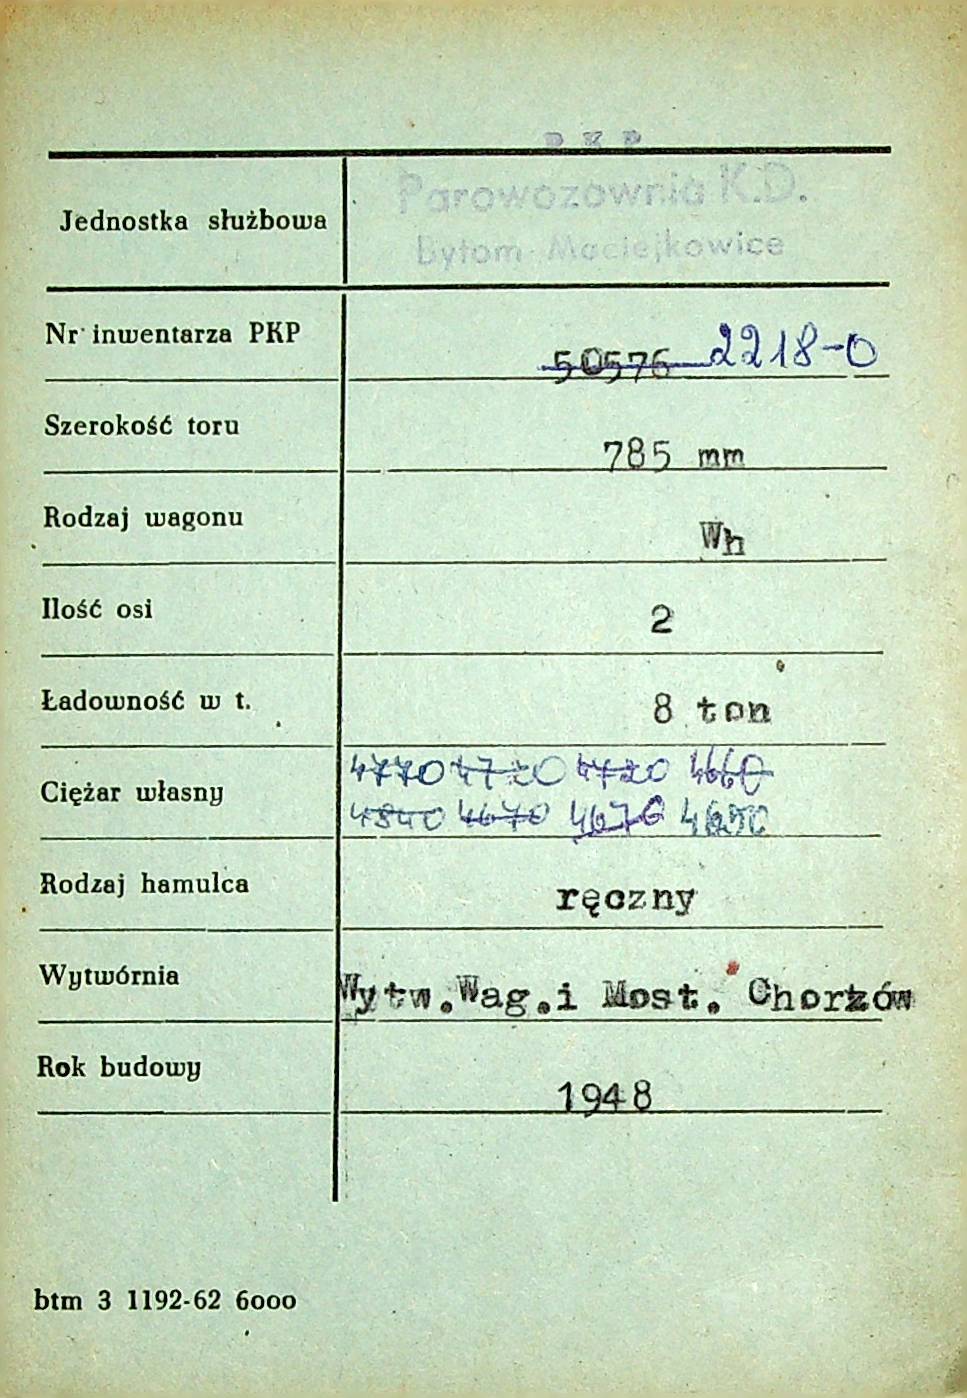 P K P
Parowozownia K.D.
Jednostka służbowa
Bytom-Maciejkowice
Nr inwentarza PKP 50576 2218-0
Szerokość toru 785 mm
Rodzaj wagonu Wh
Ilość osi 2
Ładowność w t. 8 ton
4770 4720 4720 4660
Ciężar własny
4840 4670 4670 4650
Rodzaj hamulca ręczny
Wytwórnia Wytw.Wag.i Most. Chorzów
Rok budowy 1948
btm 3 1192-62 6000